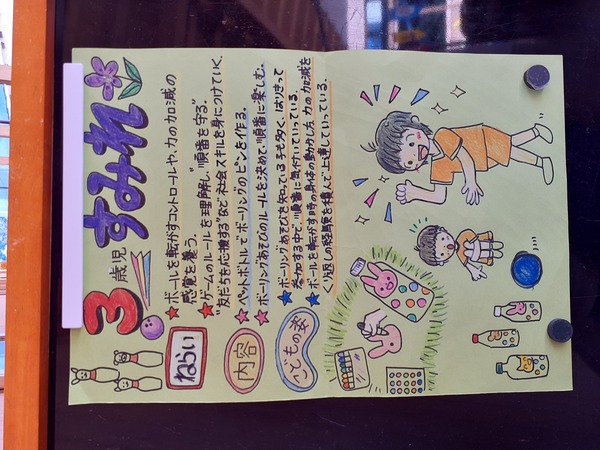 3歳児 すみれ
ねらい
★ボールを転がすコントロールや、力の加減の
感覚を養う。
★ゲームのルールを理解し、"順番を守る"
"友だちを応援する"など社会スキルを身につけていく。
内容
★ペットボトルでボーリングのピンを作る。
★ボーリングあそびのルールを決めて、順番に楽しむ。
こどもの姿
★ボーリングあそびを知っている子も多く、はりきって
参加する中で、順番に気付いていっている。
★ボールを転がす時の身体の動かし方、力の加減を
くり返しの経験を積んで上達していっている。